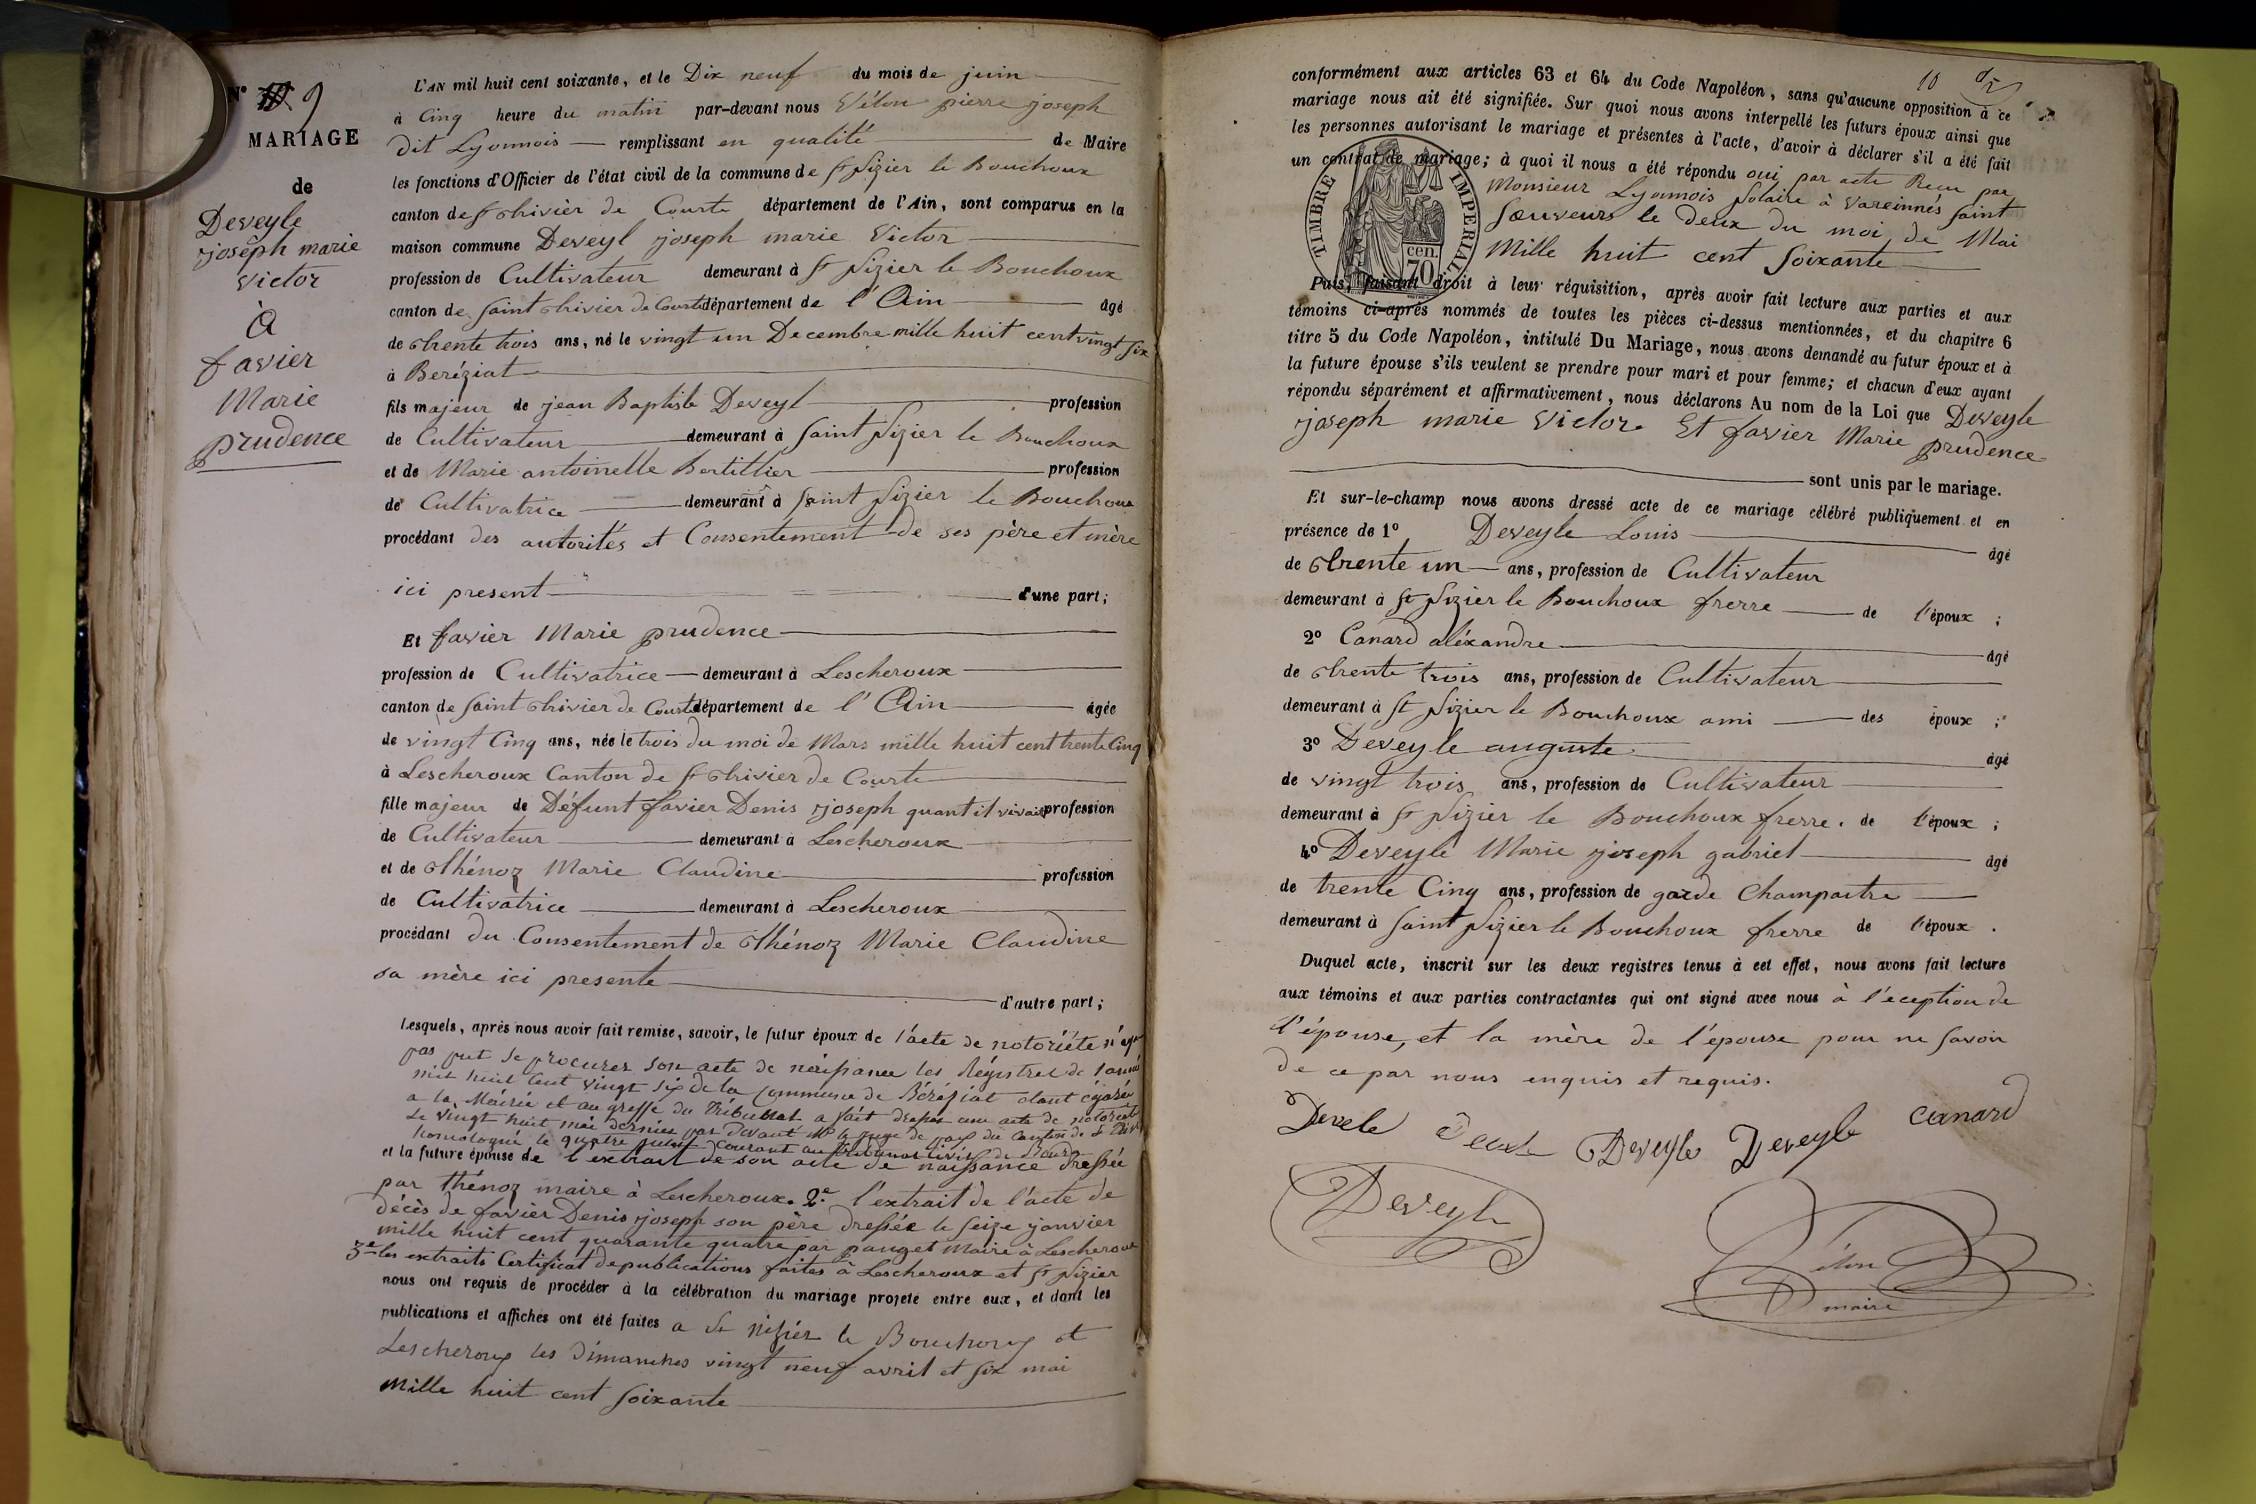 N° 9
MARIAGE
de
Deveyle
joseph marie
Victor
à
favier
Marie
prudence
L'AN mil huit cent soixante, et le Dix neuf du mois de juin
à Cinq heure du matin par-devant nous Vélon pierre joseph
dit Lyonnois remplissant en qualité de Maire
les fonctions d'Officier de l'état civil de la commune de St Nizier le Bouchoux
canton de St Trivier de Courte département de l'Ain, sont comparus en la
maison commune Deveyl joseph marie Victor
profession de Cultivateur demeurant à St Nizier le Bouchoux
canton de Saint Trivier de Courte département de l'Ain âgé
de trente trois ans, né le vingt un Decembre mille huit cent vingt six
à Beréziat
fils majeur de jean Baptiste Deveyl profession
de Cultivateur demeurant à Saint Nizier le Bouchoux
et de Marie antoinette Bertillier profession
de Cultivatrice demeurant à Saint Nizier le Bouchoux
procédant des autorités et Consentement de ses père et mère
ici present d'une part;
Et favier Marie prudence
profession de Cultivatrice demeurant à Lescheroux
canton de Saint Trivier de Courte département de l'Ain âgée
de vingt Cinq ans, née le trois du moi de Mars mille huit cent trente Cinq
à Lescheroux Canton de St Trivier de Courte
fille majeur de Défunt favier Denis joseph quant il vivait profession
de Cultivateur demeurant à Lescheroux
et de Thénoz Marie Claudine profession
de Cultivatrice demeurant à Lescheroux
procédant du Consentement de Thénoz Marie Claudine
sa mère ici presente
d'autre part;
Lesquels, après nous avoir fait remise, savoir, le futur époux de l'acte de notoriété n'ayant
pas put se procurer son acte de naissance les Régistres de l'année
mil huit cent vingt six de la Commune de Béréziat étant égarés
a la Mairie et au greffe du Tribunal a fait dresser un acte de notoriété
Le vingt huit mai dernier par devant Mr le juge de paix du Canton de St Triv
homologué le quatre juin courant au tribunal civil de Bourg
et la future épouse de l'extrait de son acte de naissance dressée
par thénoz maire à Lescheroux. 2e l'extrait de l'acte de
décès de favier Denis joseph son père dressée le seize janvier
mille huit cent quarante quatre par panget Maire à Lescheroux
3e les extraits Certificat de publications faites à Lescheroux et St Nizier
nous ont requis de procéder à la célébration du mariage projeté entre eux, et dont les
publications et affiches ont été faites a St Nizier le Bouchoux et
Lescheroux les Dimanches vingt neuf avril et six mai
Mille huit cent soixante
10
conformément aux articles 63 et 64 du Code Napoléon, sans qu'aucune opposition à ce
mariage nous ait été signifiée. Sur quoi nous avons interpellé les futurs époux ainsi que
les personnes autorisant le mariage et présentes à l'acte, d'avoir à déclarer s'il a été fait
un contrat de mariage; à quoi il nous a été répondu oui par acte Recu par
Monsieur Lyonnois Notaire à Vareinnes Saint
Sauveur le deux du moi de Mai
Mille huit cent Soixante
TIMBRE IMPERIAL
cen.
70
Puis, faisant droit à leur réquisition, après avoir fait lecture aux parties et aux
témoins ci-après nommés de toutes les pièces ci-dessus mentionnées, et du chapitre 6
titre 5 du Code Napoléon, intitulé Du Mariage, nous avons demandé au futur époux et à
la future épouse s'ils veulent se prendre pour mari et pour femme; et chacun d'eux ayant
répondu séparément et affirmativement, nous déclarons Au nom de la Loi que Deveyle
joseph marie Victor. Et favier Marie prudence
sont unis par le mariage.
Et sur-le-champ nous avons dressé acte de ce mariage célébré publiquement et en
présence de 1° Deveyle Louis âgé
de trente un ans, profession de Cultivateur
demeurant à St Nizier le Bouchoux frerre de l'époux ;
2° Canard aléxandre âgé
de trente trois ans, profession de Cultivateur
demeurant à St Nizier le Bouchoux ami des époux ;
3° Deveyle auguste âgé
de vingt trois ans, profession de Cultivateur
demeurant à St Nizier le Bouchoux frerre. de l'époux ;
4° Deveyle Marie joseph gabriel âgé
de trente Cinq ans, profession de garde Champaitre
demeurant à Saint Nizier le Bouchoux frerre de l'époux .
Duquel acte, inscrit sur les deux registres tenus à cet effet, nous avons fait lecture
aux témoins et aux parties contractantes qui ont signé avec nous à l'éception de
l'épouse, et la mère de l'épouse pour ne Savoir
de ce par nous enquis et requis.
Devele Deveyle Deveyle Canard
Deveyle
Vélon
maire